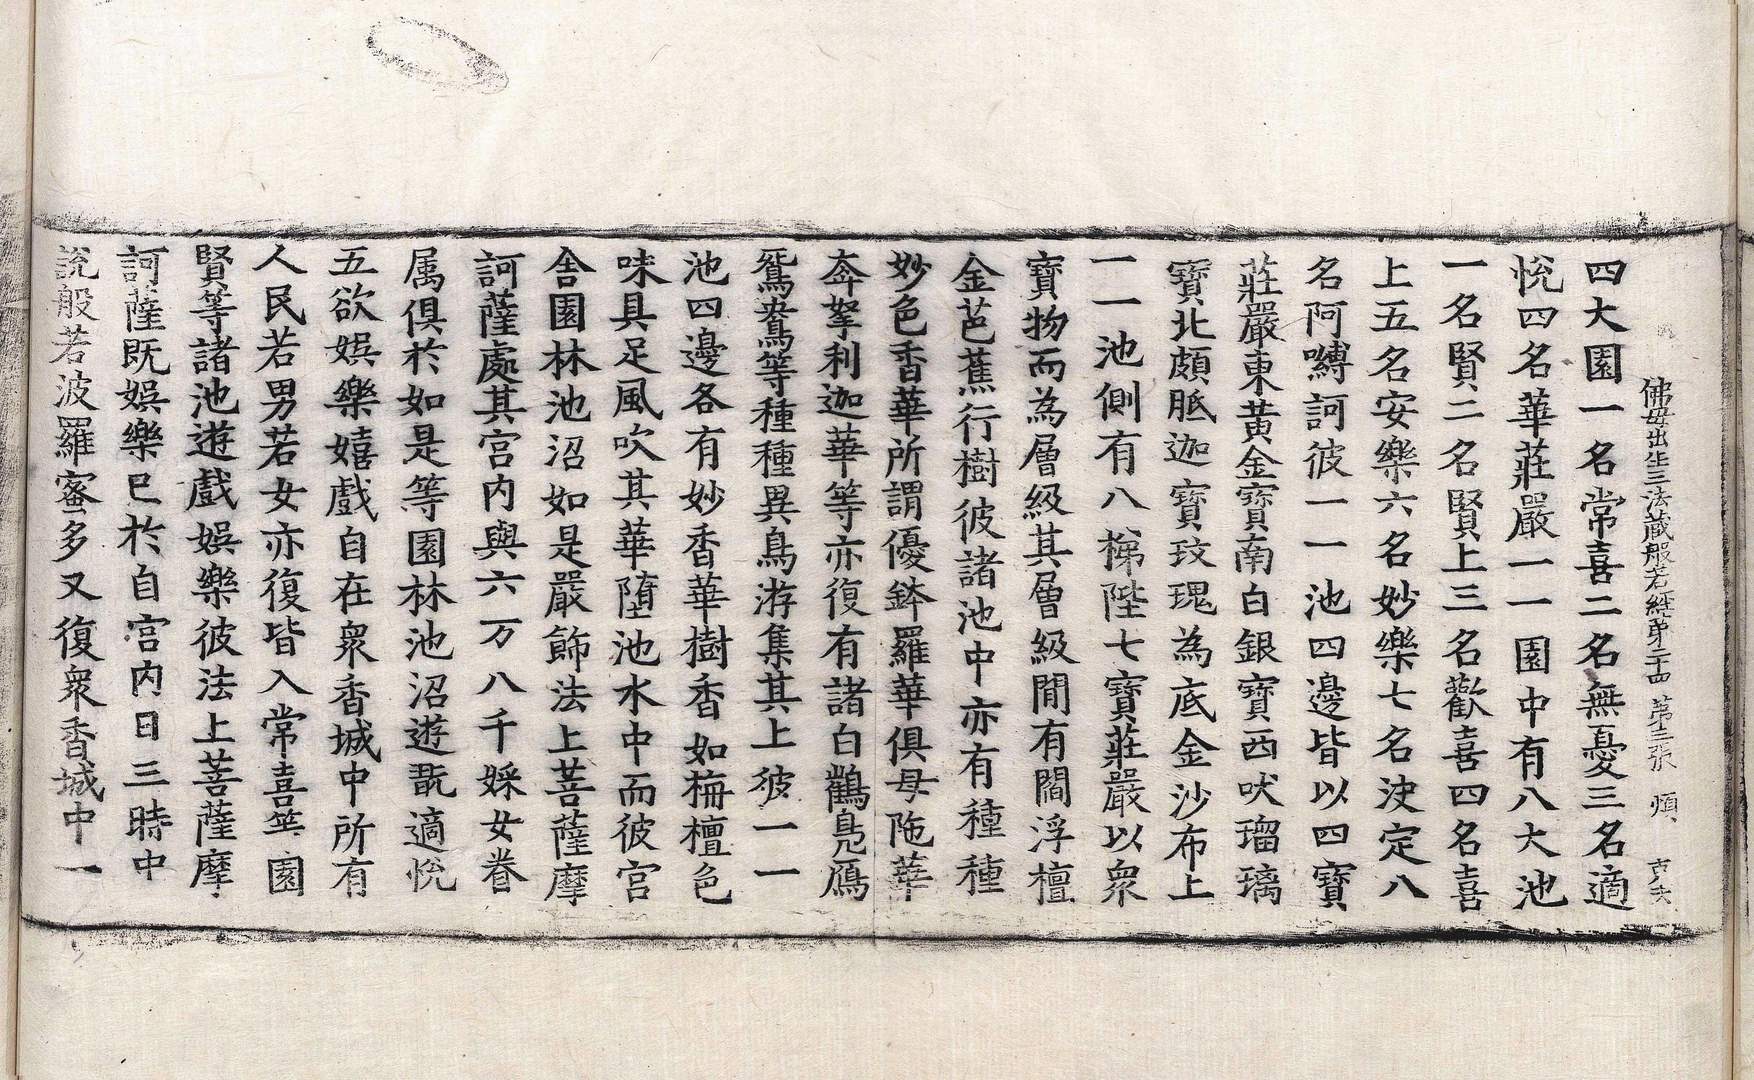 佛母出生三法藏般若經第二十四 第三張 煩
四大園一名常喜二名無憂三名適
悅四名華莊嚴一一園中有八大池
一名賢二名賢上三名歡喜四名喜
上五名安樂六名妙樂七名決定八
名阿嚩訶彼一一池四邊皆以四寶
莊嚴東黃金寶南白銀寶西吠瑠璃
寶北頗胝迦寶玟瑰為底金沙布上
一一池側有八梯陛七寶莊嚴以衆
寶物而為層級其層級閒有閻浮檀
金芭蕉行樹彼諸池中亦有種種
妙色香華所謂優鉢羅華俱母陁華
奔拏利迦華等亦復有諸白鸖鳧鴈
鴛鴦等種種異鳥游集其上彼一一
池四邊各有妙香華樹香如栴檀色
味具足風吹其華墮池水中而彼宮
舎園林池沼如是嚴飾法上菩薩摩
訶薩處其宮內與六万八千婇女眷
属俱於如是等園林池沼遊翫適悅
五欲娛樂嬉戲自在衆香城中所有
人民若男若女亦復皆入常喜等園
賢等諸池遊戲娛樂彼法上菩薩摩
訶薩既娛樂已於自宮內日三時中
說般若波羅蜜多又復衆香城中一